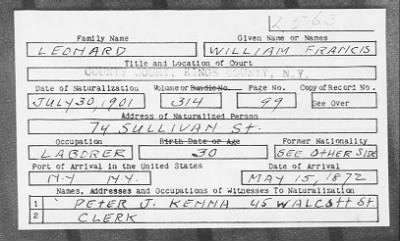 L-563
Family Name Given Name or Names
LEONARD WILLIAM FRANCIS
Title and Location of Court
COUNTY COURT, KINGS COUNTY, N.Y.
Date of Naturalization Volume or Bundle No. Page No. Copy of Record No.
JULY 30, 1901 314 99 See Over
Address of Naturalized Person
74 SULLIVAN St.
Occupation Birth Date or Age Former Nationality
LABORER 30 SEE OTHER SIDE
Port of Arrival in the United States Date of Arrival
N.Y. N.Y. MAY 15, 1872
Names, Addresses and Occupations of Witnesses To Naturalization
1 PETER J. KENNA 45 WALCOTT St.
2 CLERK